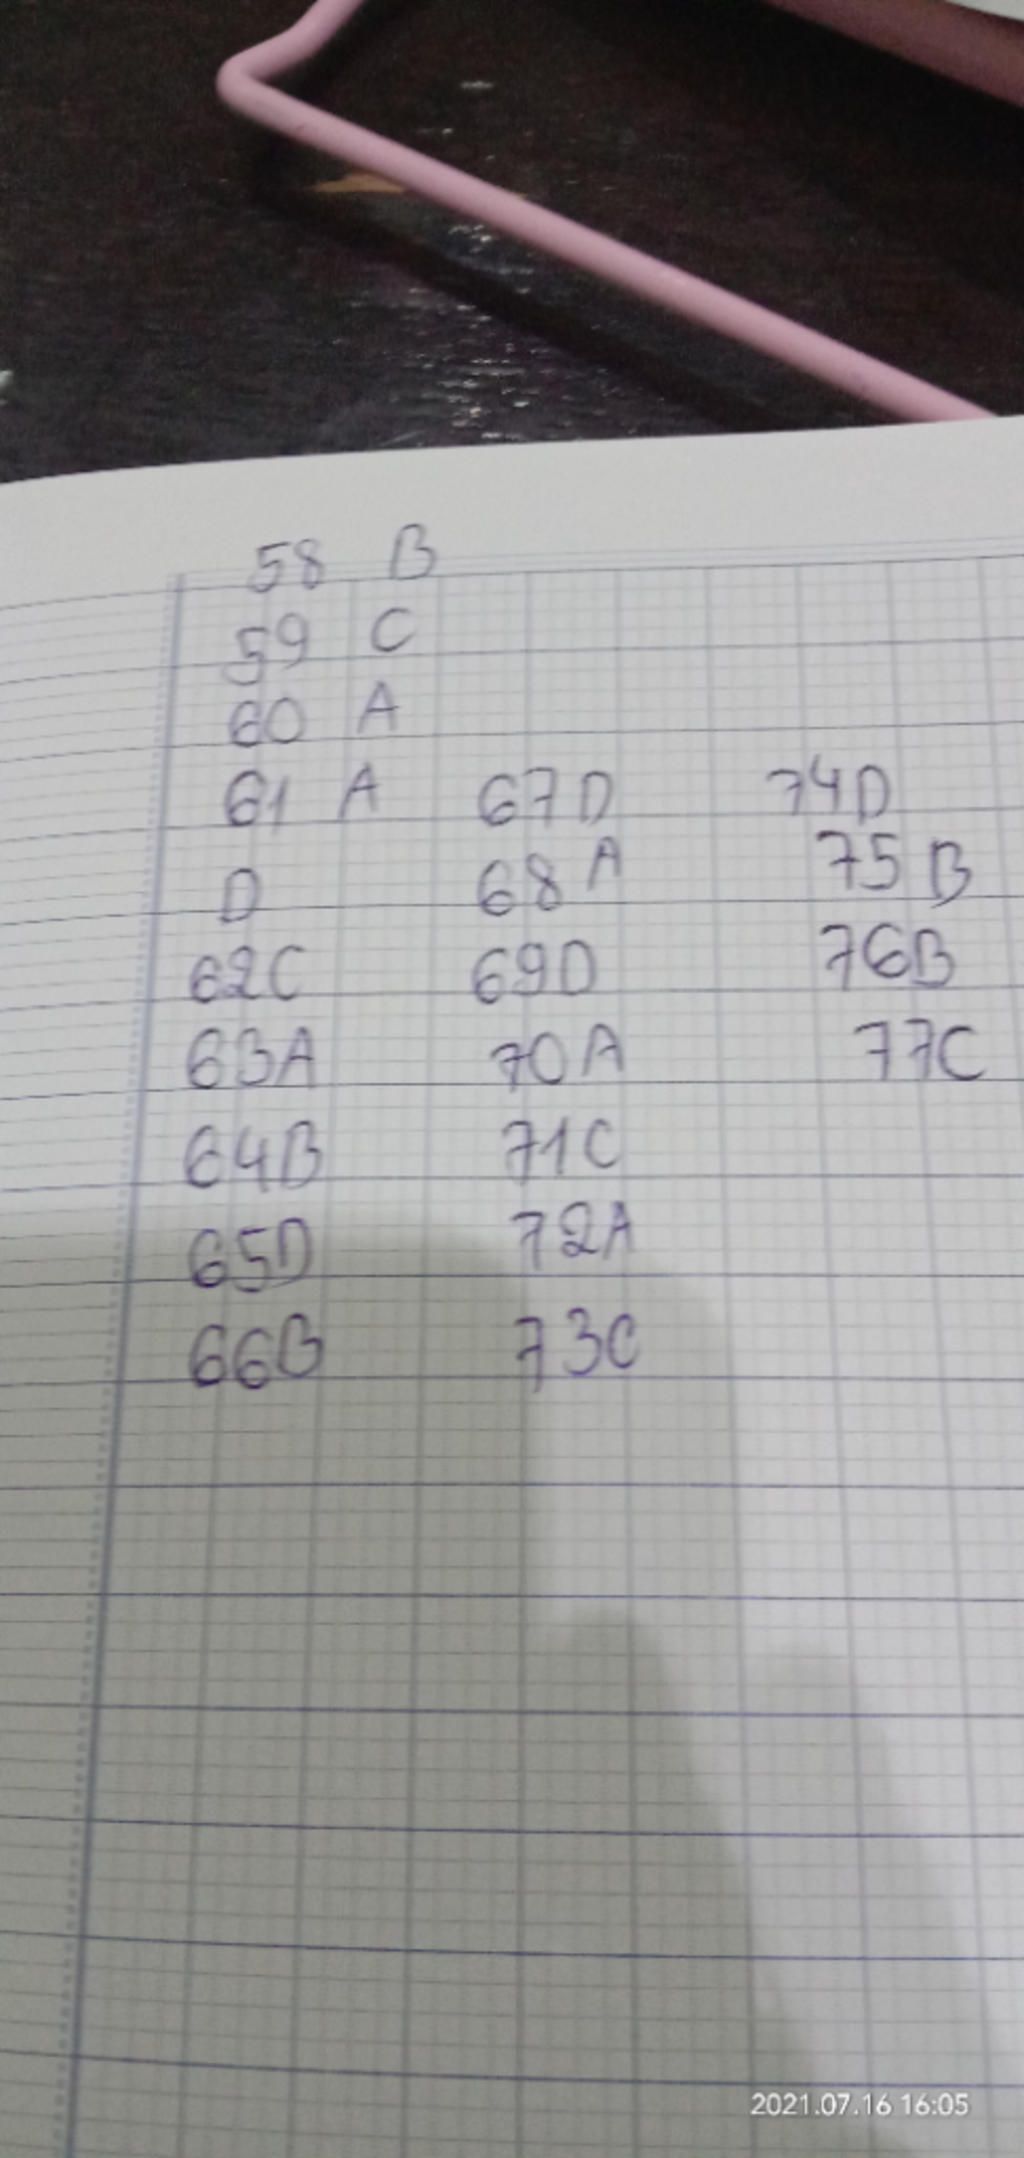 58 B
59 C
60 A
61 A
D
62C
63A
64B
65D
66B
67D
68A
69D
70A
71C
72A
73C
74D
75B
76B
77C
2021.07.16 16:05